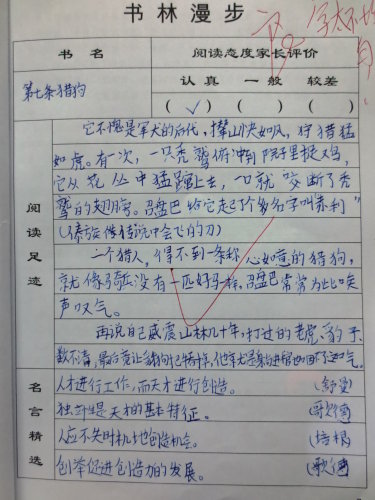 书林漫步
字太不均匀
书名
阅读态度家长评价
第七条猎狗
认真 一般 较差
( ✓ ) ( ) ( )
阅读足迹
它不愧是军犬的后代,撵山快如风,狩猎猛
如虎。有一次,一只秃鹫俯冲到院子里捉鸡,
它从花丛中猛蹿上去,一口就咬断了秃
鹫的翅膀。召盘巴给它起了个名字叫赤利"
(傣族传说中会飞的刀)
一个猎人,得不到一条称心如意的猎狗,
就像骑兵没有一匹好马一样,召盘巴常常为此唉
声叹气。
再说自己威震山林几十年,打过的老虎、豹子
数不清,
名言精选
人才进行工作,而天才进行创造。 (舒曼)
独创性是天才的基本特征。 (歌德)
人应不失时机地创造机会。 (培根)
创举促进创造力的发展。 (歌德)